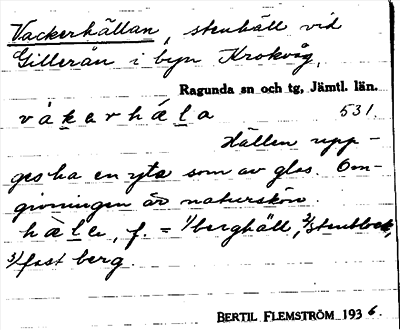 Vackerhällan, stenhäll vid
Gillerån i byn Krokvåg,
Ragunda sn och tg, Jämtl. län.
våkerhæla 531.
Hällen upp-
ges ha en yta som av glas. Om-
givningen är naturskön.
hæle, f. = 1/berghäll, 2/stenblock,
3/fast berg.
BERTIL FLEMSTRÖM 1936.